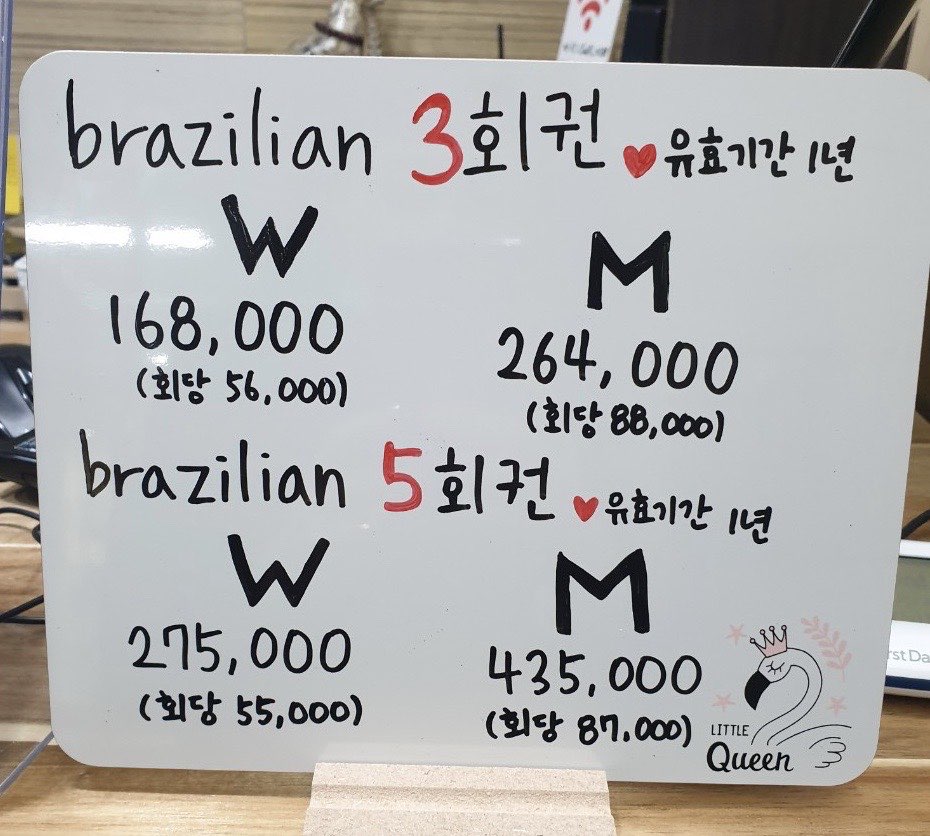 brazilian 3회권 ♥유효기간 1년
W
168,000
(회당 56,000)
M
264,000
(회당 88,000)
brazilian 5회권 ♥유효기간 1년
W
275,000
(회당 55,000)
M
435,000
(회당 87,000)
LITTLE
Queen